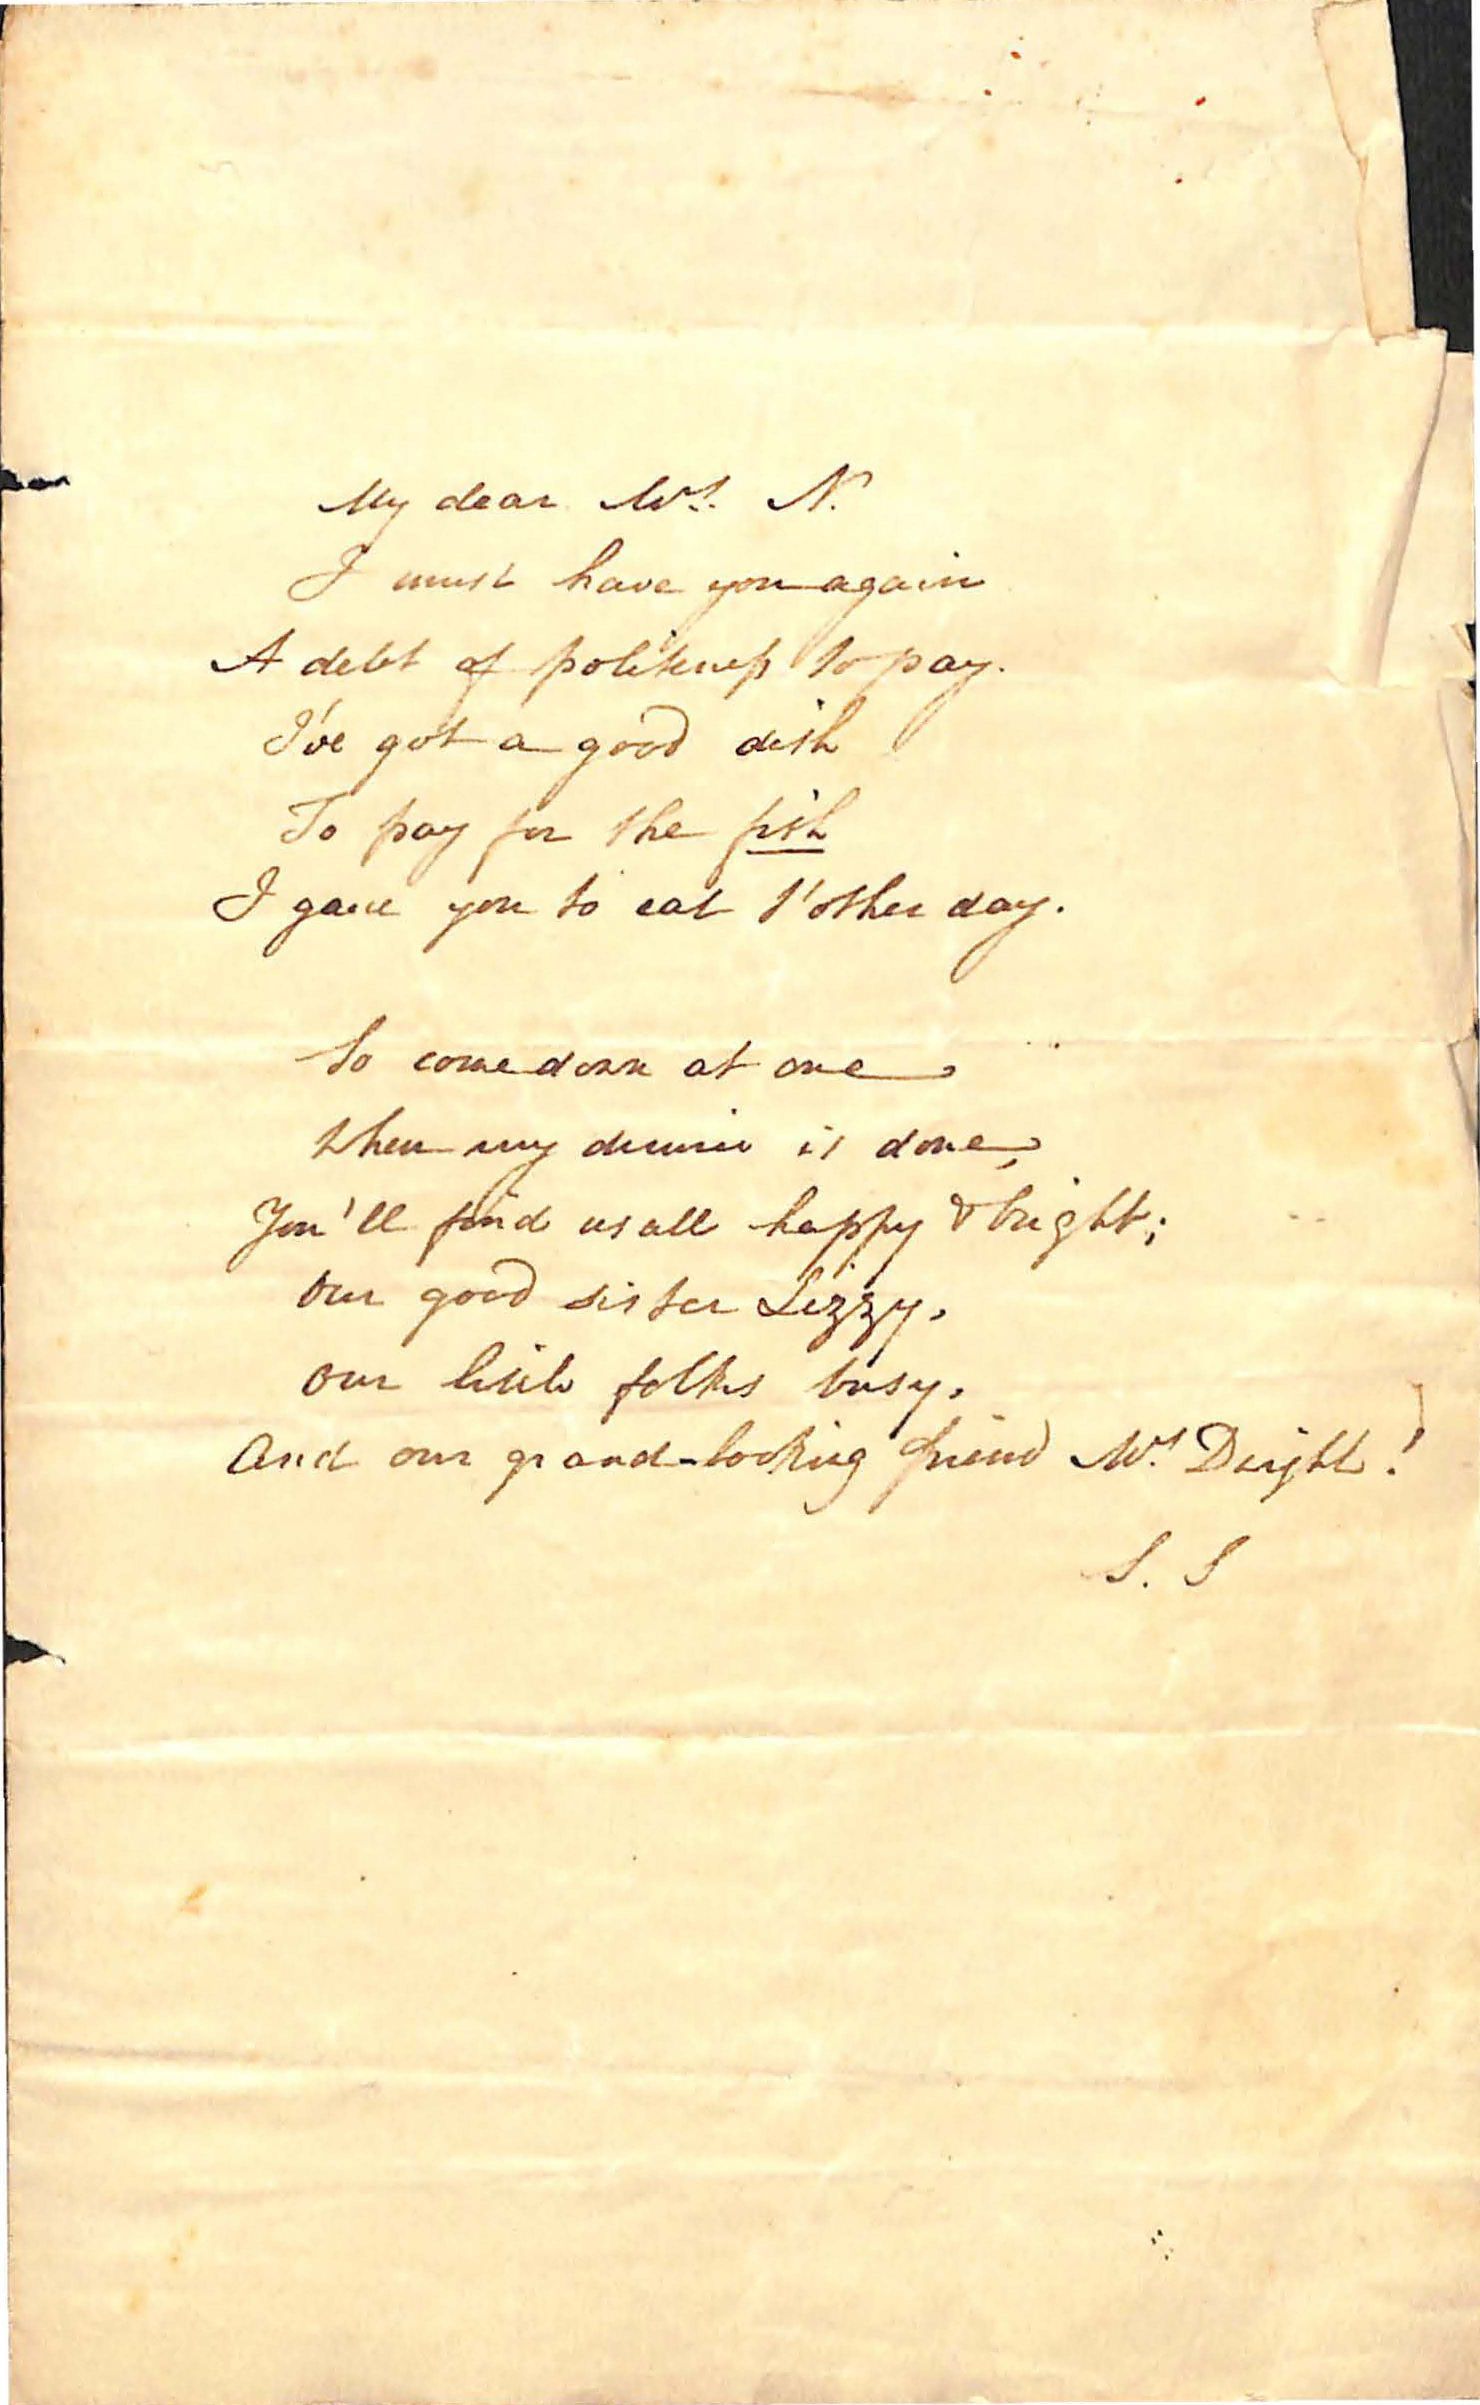 My dear Mrs. N.
I must have you again
A debt of politeness to pay.
I've got a good dish
To pay for the fish
I gave you to eat t'other day.
So come down at one,
When my dinner is done,
You'll find us all happy & bright;
Our good sister Lizzy,
Our little folks busy,
And our grand-looking friend Mrs Dwight!
S. S